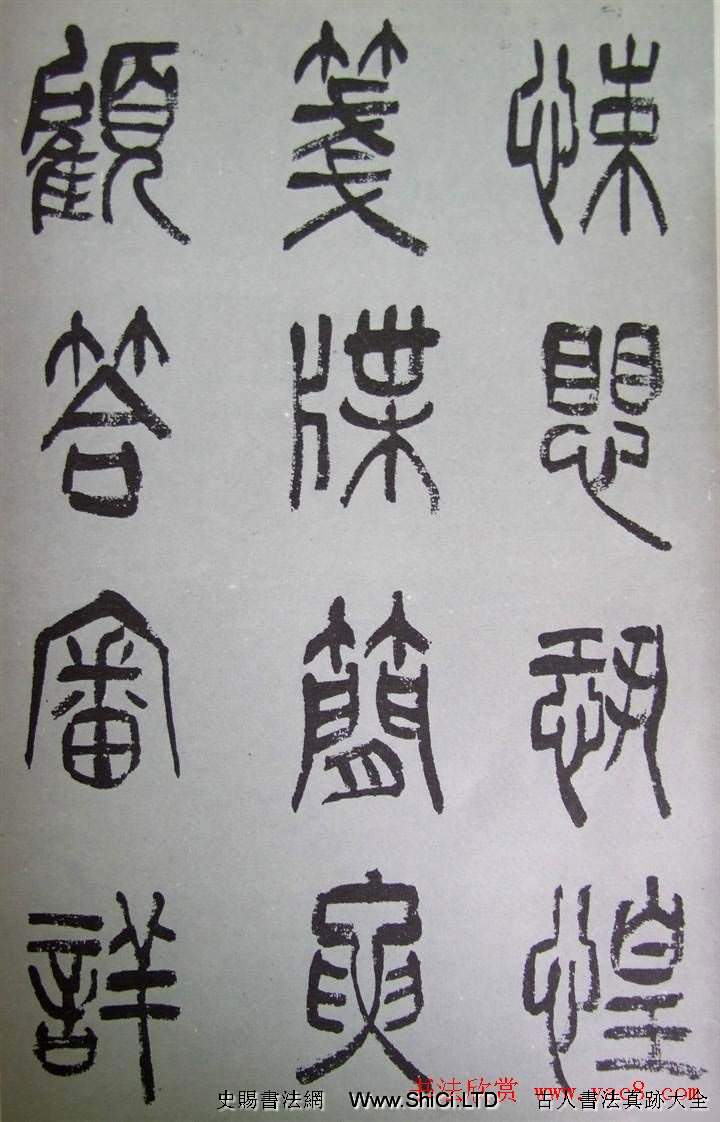 悚愳恐惶
箋牒簡要
顧答審詳
书法欣赏 www.yac8.com
史賜書法網 Www.ShiCi.LTD 古人書法真跡大全